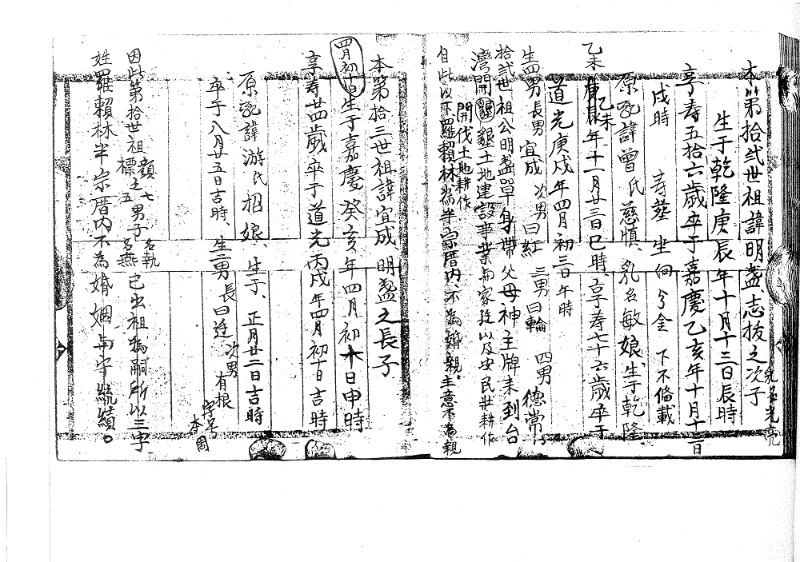 本第拾弍世祖諱明盞志拔之次子
生于乾隆庚辰年十月十三日辰時
享寿五拾六歲卒于嘉慶乙亥年十月十二日
戌時 寿葬 坐向分金 下不俻載
原配諱曾氏慈慎乳名敏娘生于乾隆
乙未
乙未
庚辰年十一月廿三日巳時享寿七十六歲卒于
道光庚戌年四月初三日午時
生男長男 宜成 次男曰紅 三男曰輪 四男 德常
拾弍世祖公明盞單身帶父母神主牌來到台
灣開墾土地建設事業
開伐土地耕作
自此以下羅賴林為半宗厝內不為婚親
本第拾三世祖諱宜成明盞之長子
四月初十日生于嘉慶癸亥年四月初十日申時
享寿廿四歲卒于道光丙戌年四月初十日吉時
原配諱游氏招娘生于正月廿二日吉時
卒于八月廿五日吉時 生二男長曰 次男 有根
字号
因此第拾世祖 顏七 標之五 男子 名執 名燕 己出祖為嗣所以三字
姓羅賴林半宗厝內不為婚姻與守統績。